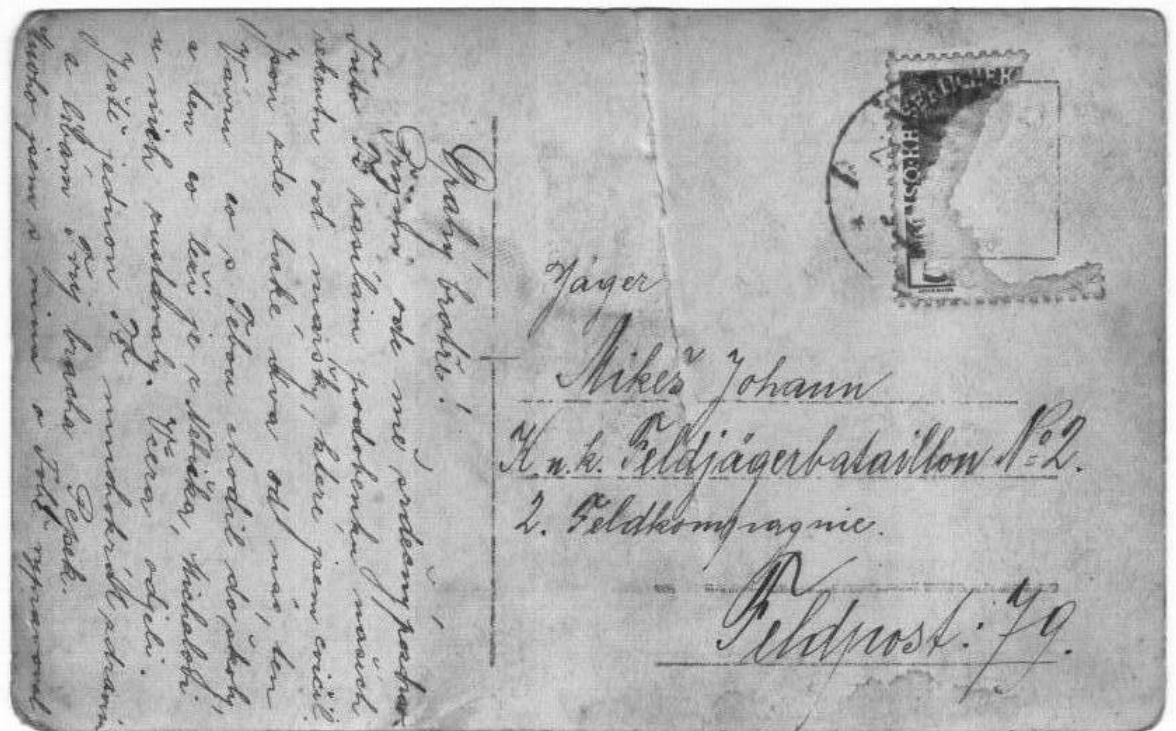 Drahý bratře!
Přijmi ode mě srdečný pozdrav.
Tuto Ti zasílám podobenku našich
rekrutů od maršky, které jsem cvičil
jsou zde také dva od nás, ten
Vávru co s Tebou chodil do školy,
a ten co leží je z Netička, Michalovi
u nich zustávaly. Včera odjeli.
Ještě jednou Tě mnohokrát zdravím
a líbám Tvůj brácha Pepek.
mnoho jsem s nima o Tobě vypravoval
Jäger
Mikeš Johann
K.u.k. Feldjägerbataillon No 2.
2. Feldkompagnie.
Feldpost: 79.